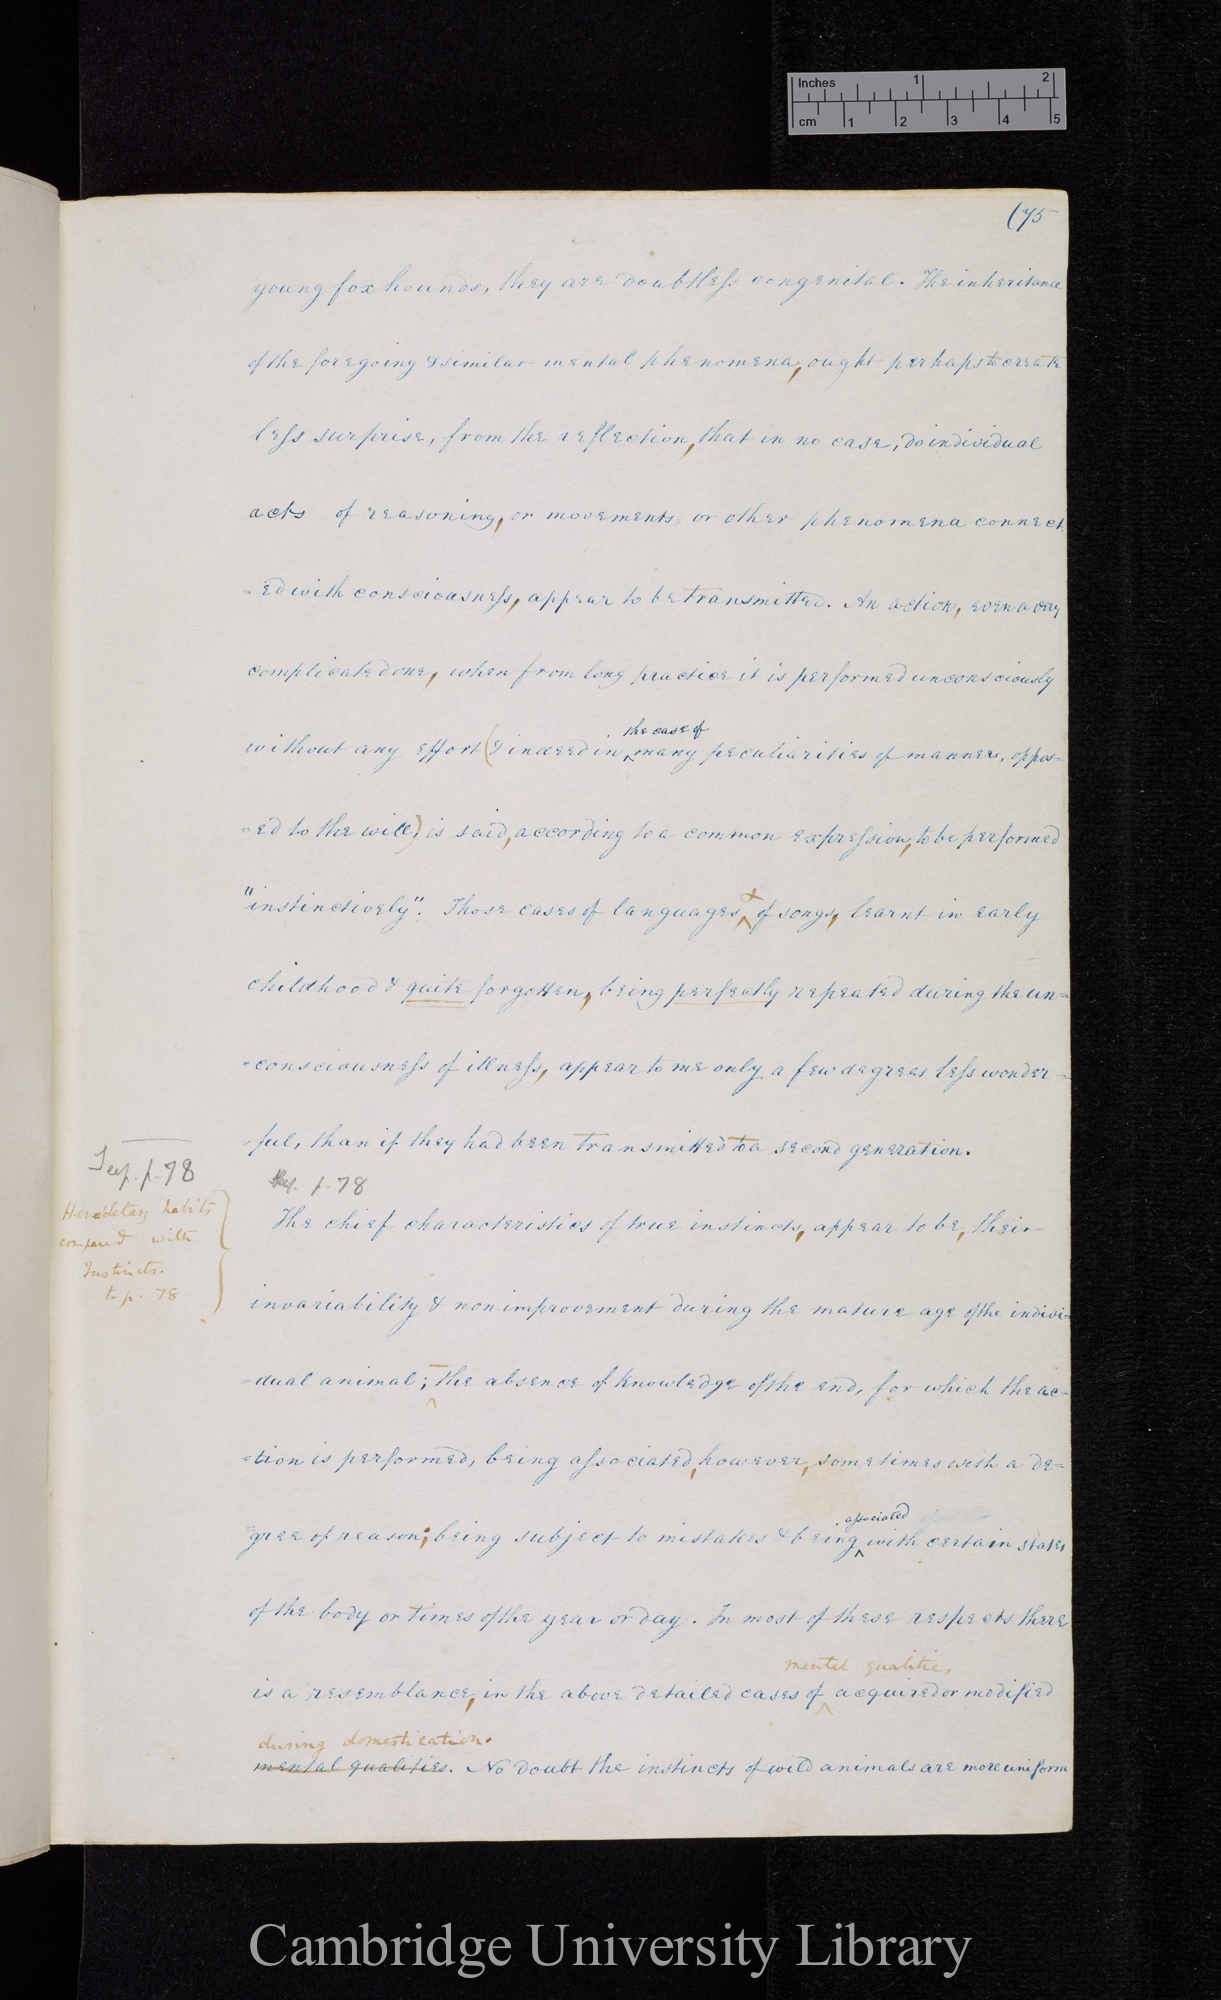 Inches 1 2
cm 1 2 3 4 5
(75
young fox hounds, they are doubtless congenital. The inheritance
of the foregoing & similar mental phenomena, ought perhaps to create
less surprise, from the reflection, that in no case, do individual
acts of reasoning, or movements or other phenomena connect
=ed with consciousness, appear to be transmitted. An action, even a very
complicated one, when from long practice it is performed unconsciously
the case of
without any effort (& indeed in ^ many peculiarities of manners, oppos=
=ed to the will) is said, according to a common expression, to be performed
"instinctively". Those cases of languages, ^ & of songs, learnt in early
childhood & quite forgotten, being perfectly repeated during the un=
=consciousness of illness, appear to me only a few degrees less wonder=
=ful, than if they had been transmitted to a second generation.
p. 78
p. 78
Hereditary habits
compared with
Instincts.
to p. 78
The chief characteristics of true instincts, appear to be, their
invariability & non improvement during the mature age of the indivi=
=dual animal; ^ the absence of knowledge of the end, for which the ac=
=tion is performed, being associated, however, sometimes with a de=
=gree of reason; being subject to mistakes & being ^ with certain states
associated
of the body or times of the year or day. In most of these respects there
mental qualities
is a resemblance, in the above detailed cases of ^ acquired or modified
during domestication.
mental qualities. No doubt the instincts of wild animals are more uniform
Cambridge University Library